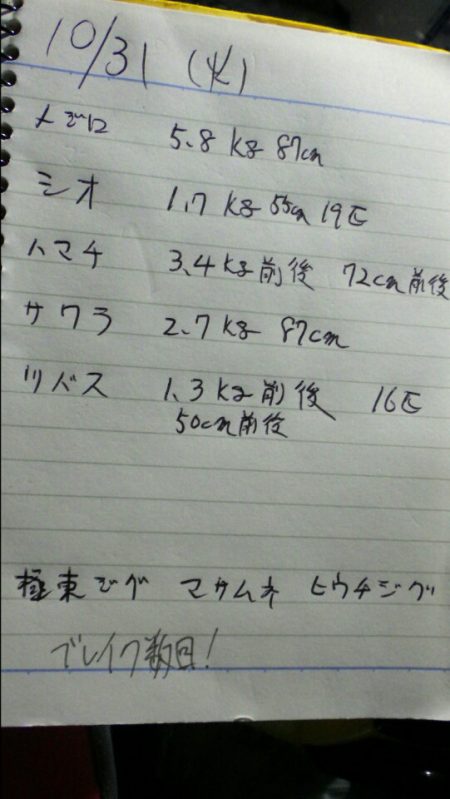 10/31 (火)
メジロ 5.8kg 87cm
シオ 1.7kg 55cm 19匹
ハマチ 3.4kg前後 72cm前後
サワラ 2.7kg 87cm
ツバス 1.3kg前後 16匹
50cm前後
極東ジグ マサムネ ヒウチジグ
ブレイク数回!